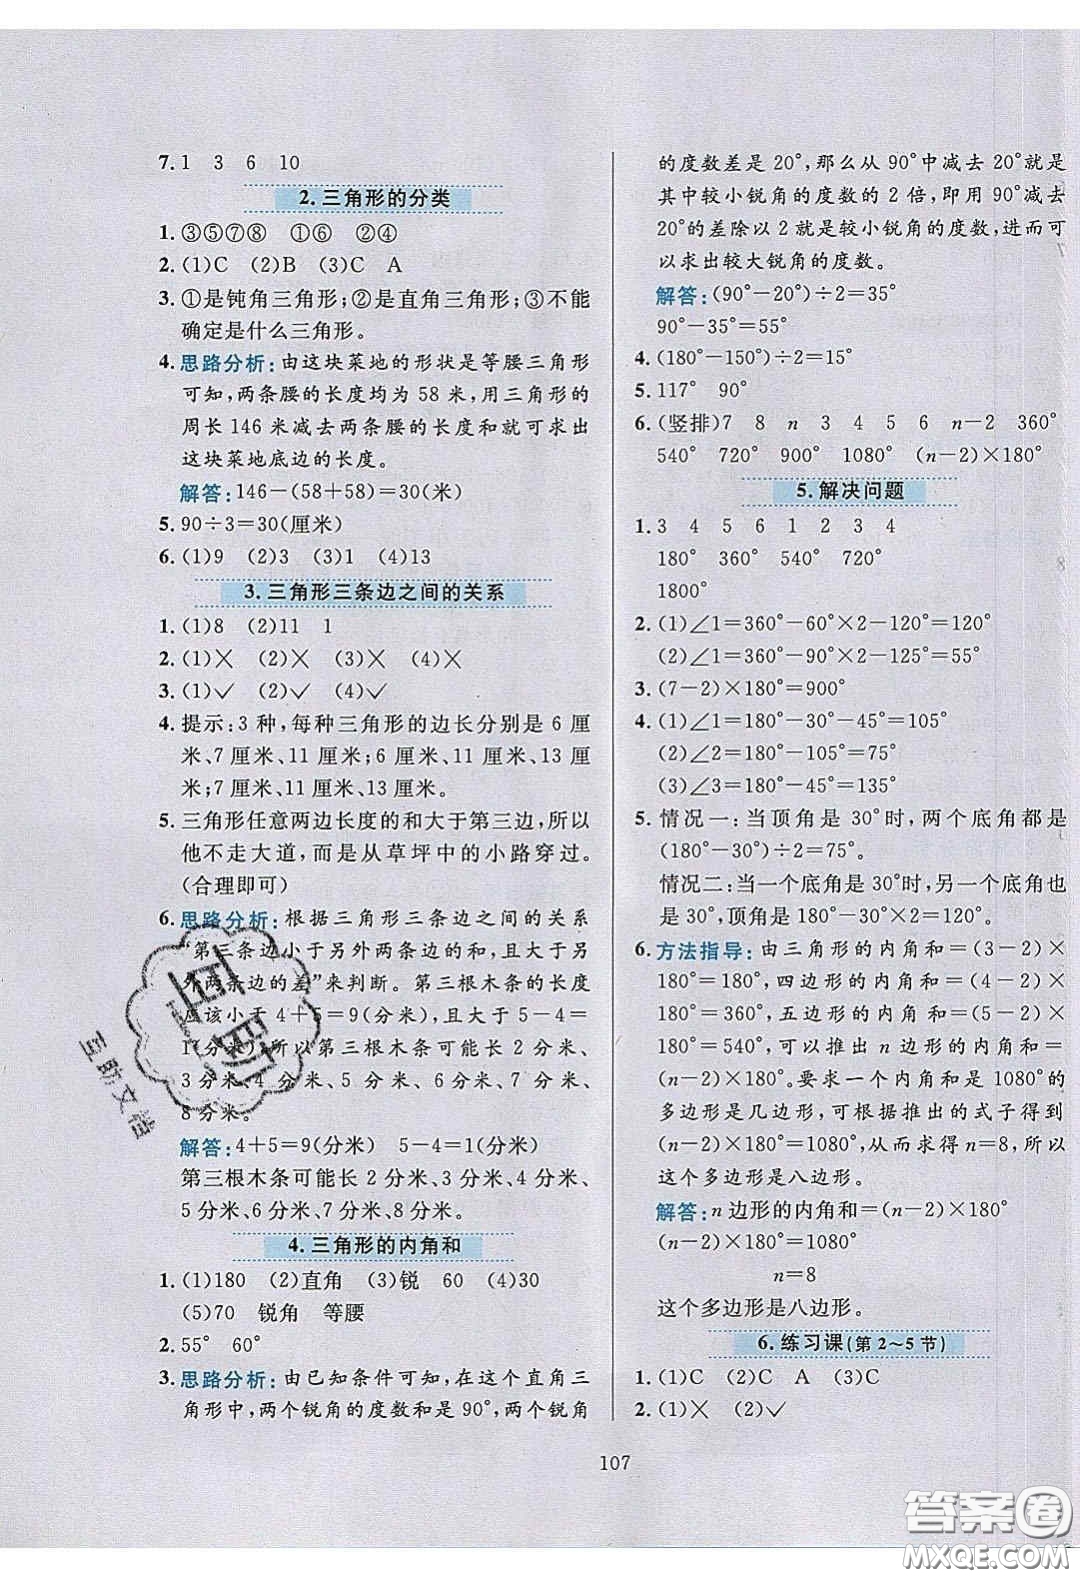 7. 1 3 6 10
2. 三角形的分类
1. ③⑤⑦⑧ ①⑥ ②④
2. (1)C (2)B (3)C A
3. ①是钝角三角形;②是直角三角形;③不能
确定是什么三角形。
4. 思路分析:由这块菜地的形状是等腰三角形
可知,两条腰的长度均为 58 米,用三角形的
周长 146 米减去两条腰的长度和就可求出
这块菜地底边的长度。
解答:146-(58+58)=30(米)
5. 90÷3=30(厘米)
6. (1)9 (2)3 (3)1 (4)13
3. 三角形三条边之间的关系
1. (1)8 (2)11 1
2. (1)× (2)× (3)× (4)×
3. (1)✓ (2)✓ (4)✓
4. 提示:3 种,每种三角形的边长分别是 6 厘
米、7 厘米、11 厘米;6 厘米、11 厘米、13 厘
米;7 厘米、11 厘米、13 厘米。
5. 三角形任意两边长度的和大于第三边,所以
他不走大道,而是从草坪中的小路穿过。
(合理即可)
6. 思路分析:根据三角形三条边之间的关系
“第三条边小于另外两条边的和,且大于另
外两条边的差”来判断。第三根木条的长度
应该小于 4+5=9(分米),且大于 5-4=
1(分米),所以第三根木条可能长 2 分米、
3 分米、4 分米、5 分米、6 分米、7 分米、
8 分米。
解答:4+5=9(分米) 5-4=1(分米)
第三根木条可能长 2 分米、3 分米、4 分米、
5 分米、6 分米、7 分米、8 分米。
4. 三角形的内角和
1. (1)180 (2)直角 (3)锐 60 (4)30
(5)70 锐角 等腰
2. 55° 60°
3. 思路分析:由已知条件可知,在这个直角三
角形中,两个锐角的度数和是 90°,两个锐角
的度数差是 20°,那么从 90°中减去 20°就是
其中较小锐角的度数的 2 倍,即用 90°减去
20°的差除以 2 就是较小锐角的度数,进而可
以求出较大锐角的度数。
解答:(90°-20°)÷2=35°
90°-35°=55°
4. (180°-150°)÷2=15°
5. 117° 90°
6. (竖排)7 8 n 3 4 5 6 n-2 360°
540° 720° 900° 1080° (n-2)×180°
5. 解决问题
1. 3 4 5 6 1 2 3 4
180° 360° 540° 720°
1800°
2. (1)∠1=360°-60°×2-120°=120°
(2)∠1=360°-90°×2-125°=55°
3. (7-2)×180°=900°
4. (1)∠1=180°-30°-45°=105°
(2)∠2=180°-105°=75°
(3)∠3=180°-45°=135°
5. 情况一:当顶角是 30°时,两个底角都是
(180°-30°)÷2=75°。
情况二:当一个底角是 30°时,另一个底角也
是 30°,顶角是 180°-30°×2=120°。
6. 方法指导:由三角形的内角和=(3-2)×
180°=180°,四边形的内角和=(4-2)×
180°=360°,五边形的内角和=(5-2)×
180°=540°,可以推出 n 边形的内角和=
(n-2)×180°。要求一个内角和是 1080°的
多边形是几边形,可根据推出的式子得到
(n-2)×180°=1080°,从而求得 n=8,所以
这个多边形是八边形。
解答:n 边形的内角和=(n-2)×180°
(n-2)×180°=1080°
n=8
这个多边形是八边形。
6. 练习课(第 2~5 节)
1. (1)C (2)C A (3)C
2. (1)× (2)✓
107
互助文档
答案圈
MXQE.COM